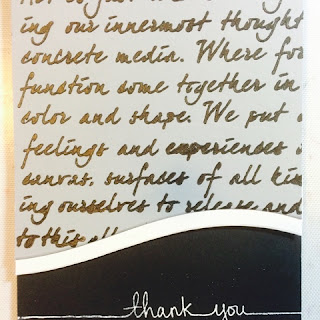 ing our innermost thought
concrete media. Where for
function come together in
color and shape. We put
feelings and experiences
canvas, surfaces of all kin
ing ourselves to release and
to this all
thank you